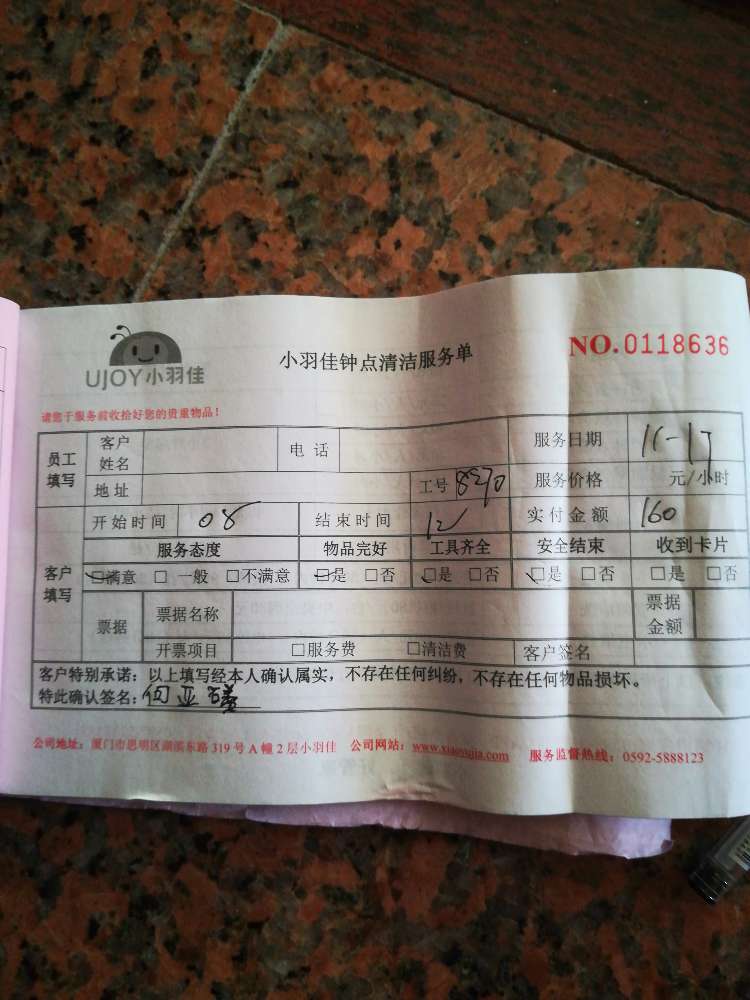 UJOY小羽佳
小羽佳钟点清洁服务单
NO.0118636
请您于服务前收拾好您的贵重物品!
员工填写 客户姓名 电话 服务日期
地址 工号 8270 服务价格 元/小时
客户填写 开始时间 08 结束时间 12 实付金额 160
服务态度 物品完好 工具齐全 安全结束 收到卡片
□满意 □一般 □不满意 □是 □否 □是 □否 □是 □否 □是 □否
票据 票据名称 票据金额
开票项目 □服务费 □清洁费 客户签名
客户特别承诺:以上填写经本人确认属实,不存在任何纠纷,不存在任何物品损坏。
特此确认签名:
公司地址:厦门市思明区湖滨东路319号A幢2层小羽佳 公司网站:www.xiaoyujia.com 服务监督热线:0592-5888123